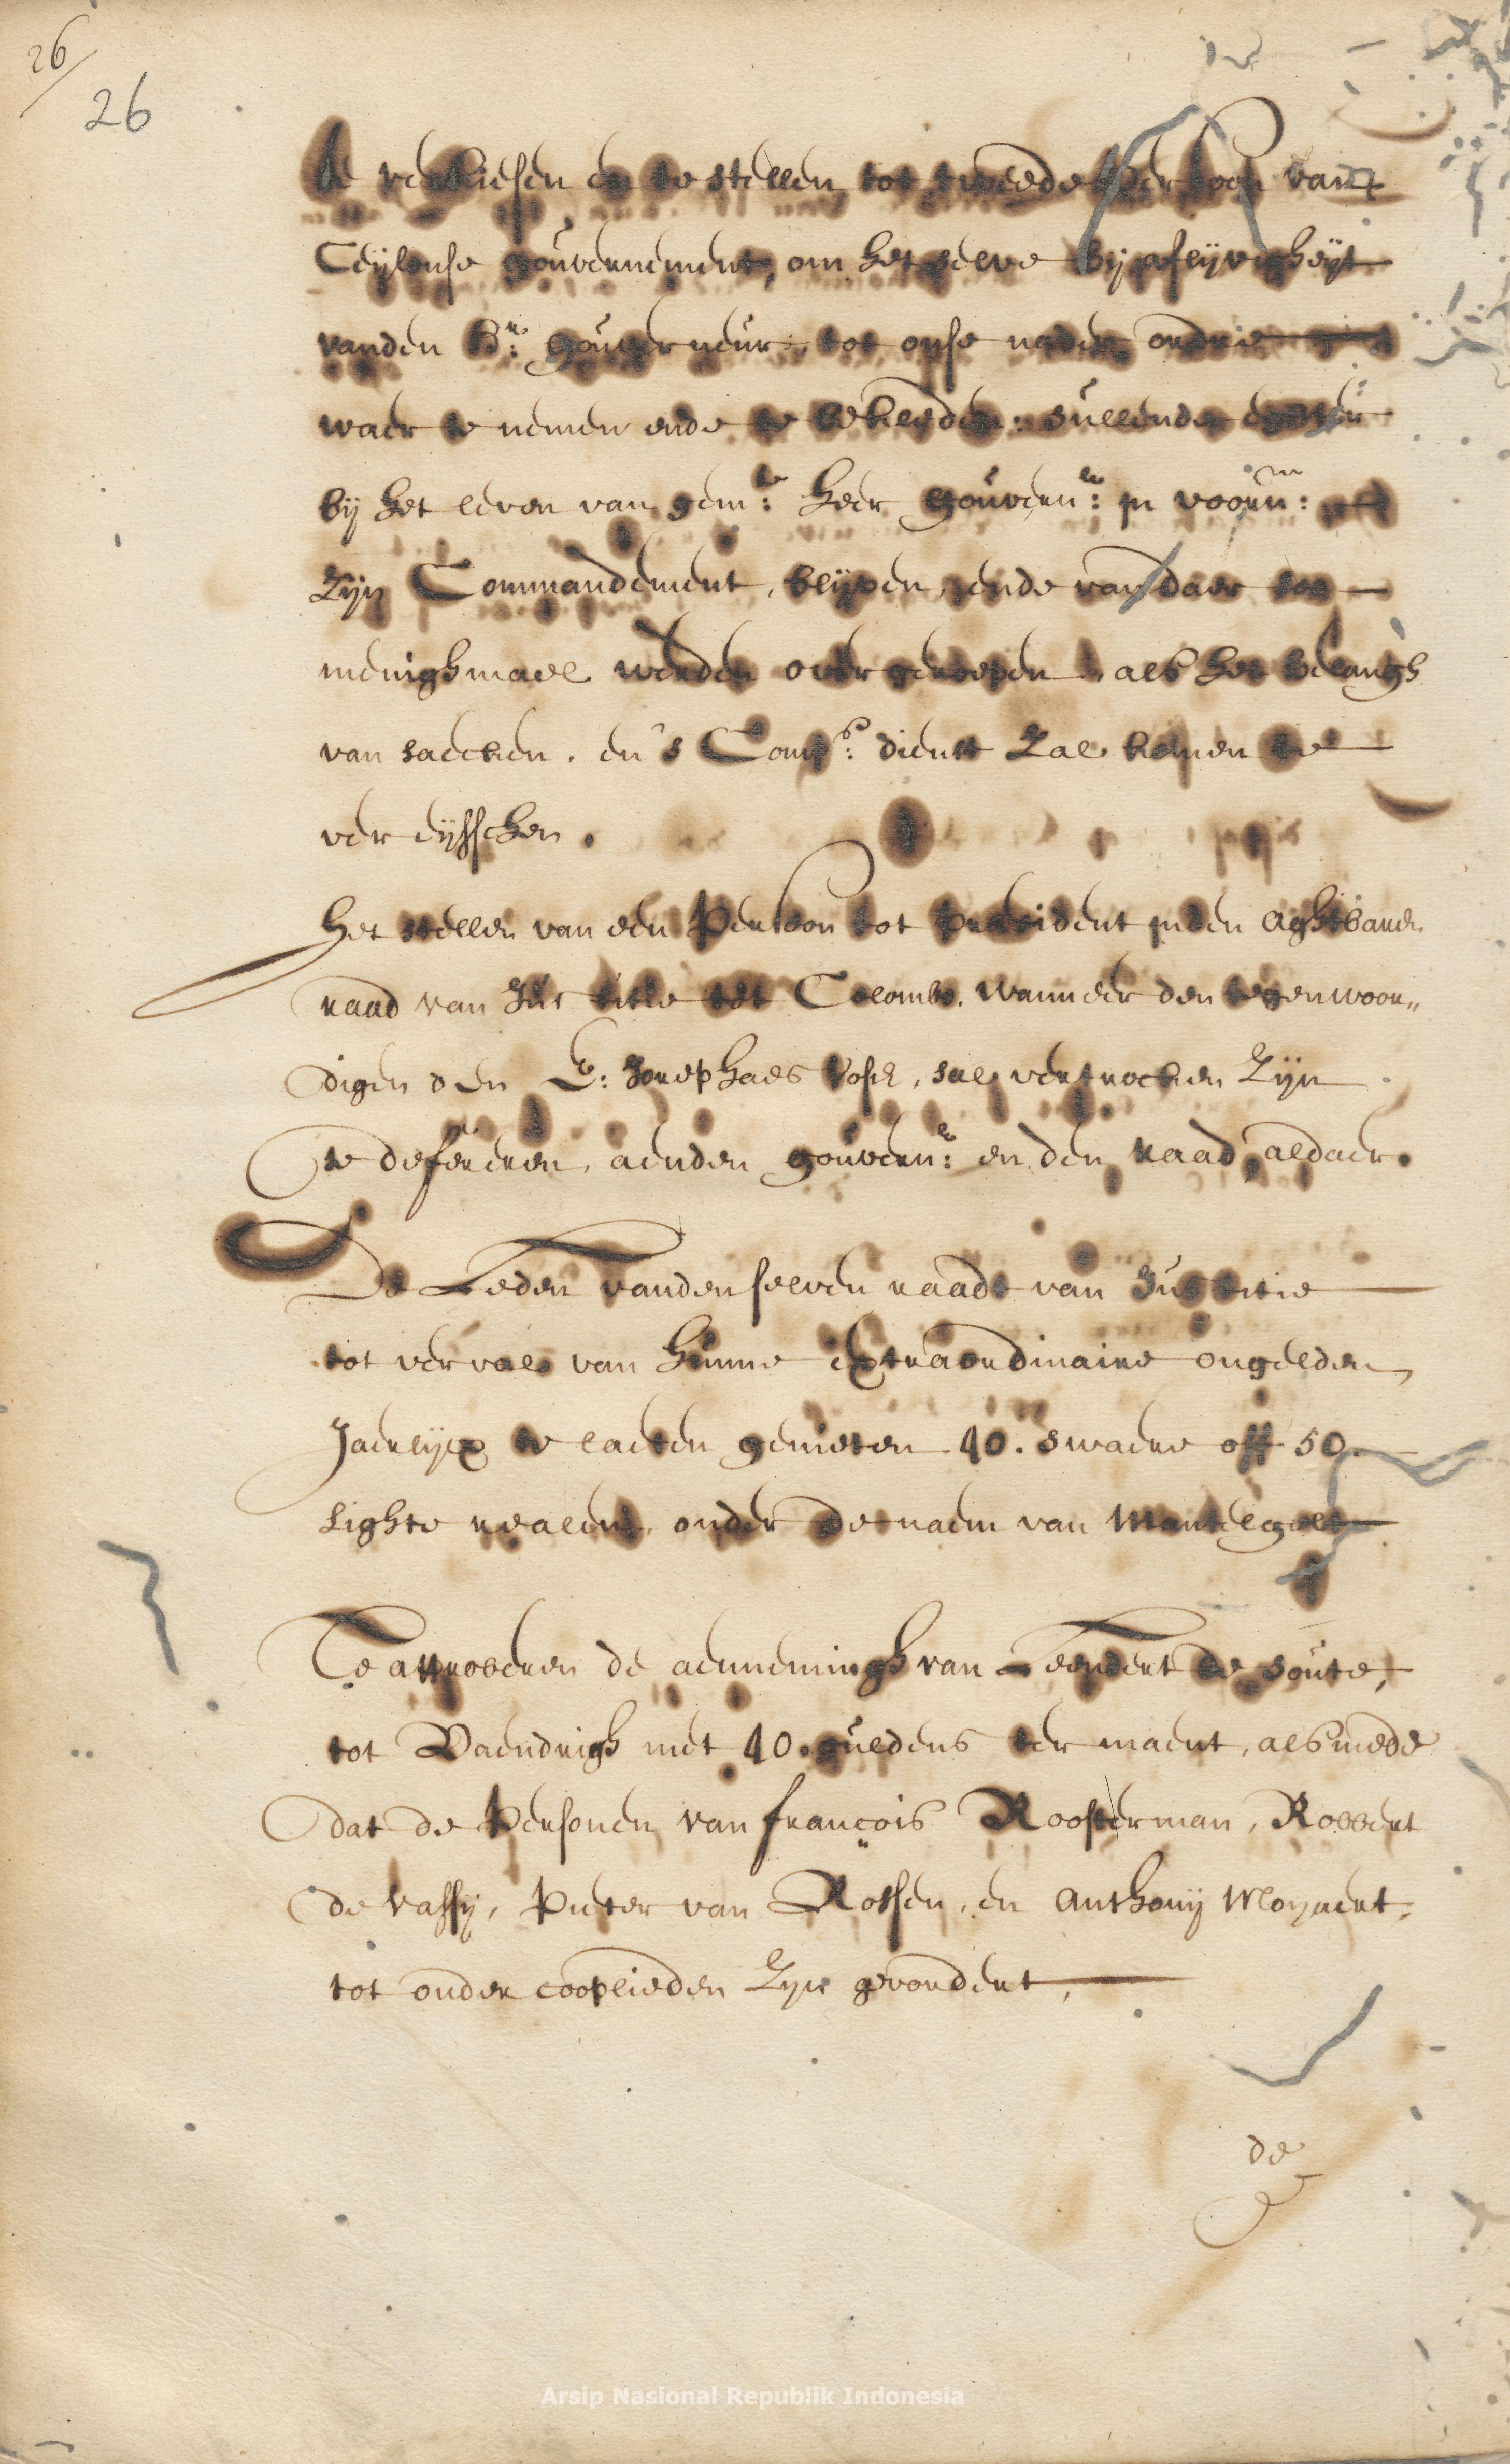 26/
26
te verkiesen en te stellen tot tweede persoon vant
Ceijlonse gouvernement, om het selve bij aflijvigheijt
vanden Hr: gouverneur, tot onse nader ordrie
waer te nemen ende te bekleeden: sullende echter
bij het leven van gemte: Heer gouvernr: in voorn:
Zijn Commandement, blijven, ende van daer soo
menighmael werden over geroepen, als het belangh
van saecken, en 's Comps: dienst Zal komen te
vereijsschen.
Het stellen van een Persoon tot President inden Aghtbaren
raad van Justitie tot Colombo, wanneer den tegenwoor„
digen den E: Josephaes Vosch, sal vertrocken Zijn
te defereren, aenden gouvernr: en den raad, aldaer.
De Leden vanden selven raadt van Justitie
tot verval van hunne extraordinaire ongelden
Jaerlijx te laeten genieten 40. swaere off 50.
lighte realen, onder de naem van Mantelgelt
Te approberen de aennemingh van Leendert de soute,
tot Vaendrigh met 40. guldens ter maent, als mede
dat de Persoonen van françois Roosterman, Robbert
de Vassij, Pieter van Rossen, en Anthonij Moyaert,
tot onder cooplieden Zijn gevordert,
de
Arsip Nasional Republik Indonesia